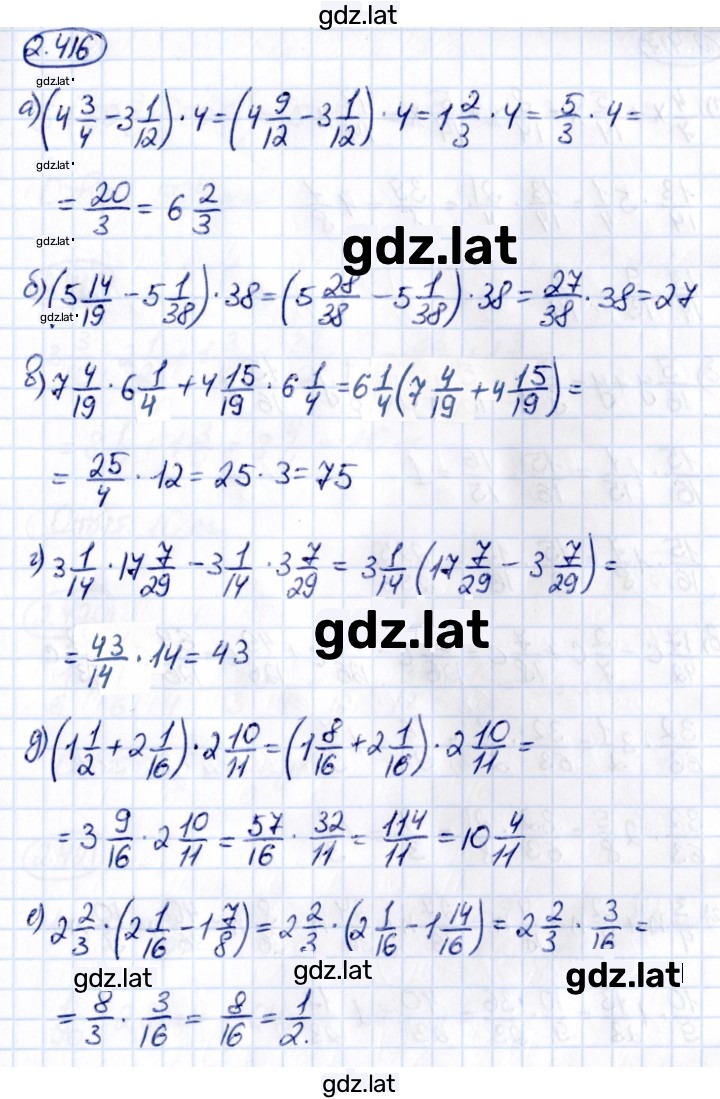 gdz.lat
2.416
gdz.lat
а) (4 3/4 - 3 1/12) · 4 = (4 9/12 - 3 1/12) · 4 = 1 2/3 · 4 = 5/3 · 4 =
gdz.lat
= 20/3 = 6 2/3
gdz.lat
gdz.lat
б) (5 14/19 - 5 1/38) · 38 = (5 28/38 - 5 1/38) · 38 = 27/38 · 38 = 27
gdz.lat
в) 7 4/19 · 6 1/4 + 4 15/19 · 6 1/4 = 6 1/4 (7 4/19 + 4 15/19) =
= 25/4 · 12 = 25 · 3 = 75
г) 3 1/14 · 17 7/29 - 3 1/14 · 3 7/29 = 3 1/14 (17 7/29 - 3 7/29) =
gdz.lat
= 43/14 · 14 = 43
д) (1 1/2 + 2 1/16) · 2 10/11 = (1 8/16 + 2 1/16) · 2 10/11 =
= 3 9/16 · 2 10/11 = 57/16 · 32/11 = 114/11 = 10 4/11
е) 2 2/3 · (2 1/16 - 1 7/8) = 2 2/3 · (2 1/16 - 1 14/16) = 2 2/3 · 3/16 =
gdz.lat
gdz.lat
gdz.lat
= 8/3 · 3/16 = 8/16 = 1/2.
gdz.lat